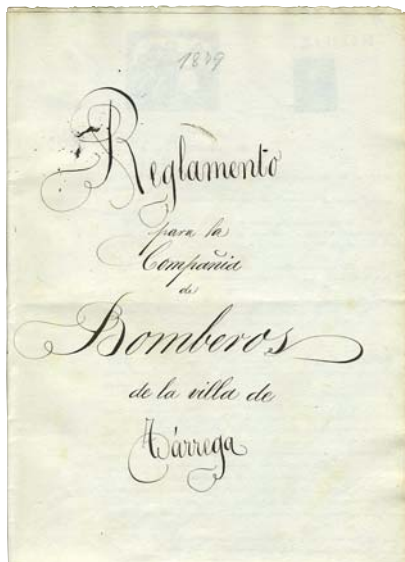 1879
Reglamento
para la
Compañia
de
Bomberos
de la villa de
Tárrega